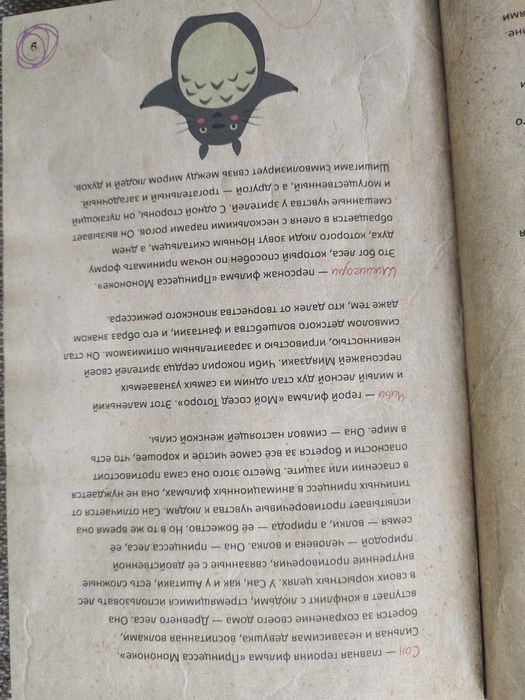 Сан — главная героиня фильма «Принцесса Мононоке».
Сильная и независимая девушка, воспитанная волками,
борется за сохранение своего дома — Древнего леса. Она
вступает в конфликт с людьми, стремящимися использовать лес
в своих корыстных целях. У Сан, как и у Ашитаки, есть сложные
внутренние противоречия, связанные с её двойственной
природой — человека и волка. Она — принцесса леса, её
семья — волки, а природа — её божество. Но в то же время она
испытывает противоречивые чувства к людям. Сан отличается от
типичных принцесс в анимационных фильмах, она не нуждается
в спасении или защите. Вместо этого она сама противостоит
опасности и борется за всё самое чистое и хорошее, что есть
в мире. Она — символ настоящей женской силы.
Чиби — герой фильма «Мой сосед Тоторо». Этот маленький
и милый лесной дух стал одним из самых узнаваемых
персонажей Миядзаки. Чиби покорил сердца зрителей своей
невинностью, игривостью и заразительным оптимизмом. Он стал
символом детского волшебства и фантазии, и его образ знаком
даже тем, кто далек от творчества японского режиссера.
Шишигами — персонаж фильма «Принцесса Мононоке».
Это бог леса, который способен по ночам принимать форму
духа, которого люди зовут Ночным скитальцем, а днем
обращается в оленя с несколькими парами рогов. Он вызывает
смешанные чувства у зрителей. С одной стороны, он пугающий
и могущественный, а с другой — трогательный и загадочный.
Шишигами символизирует связь между миром людей и духов.
6